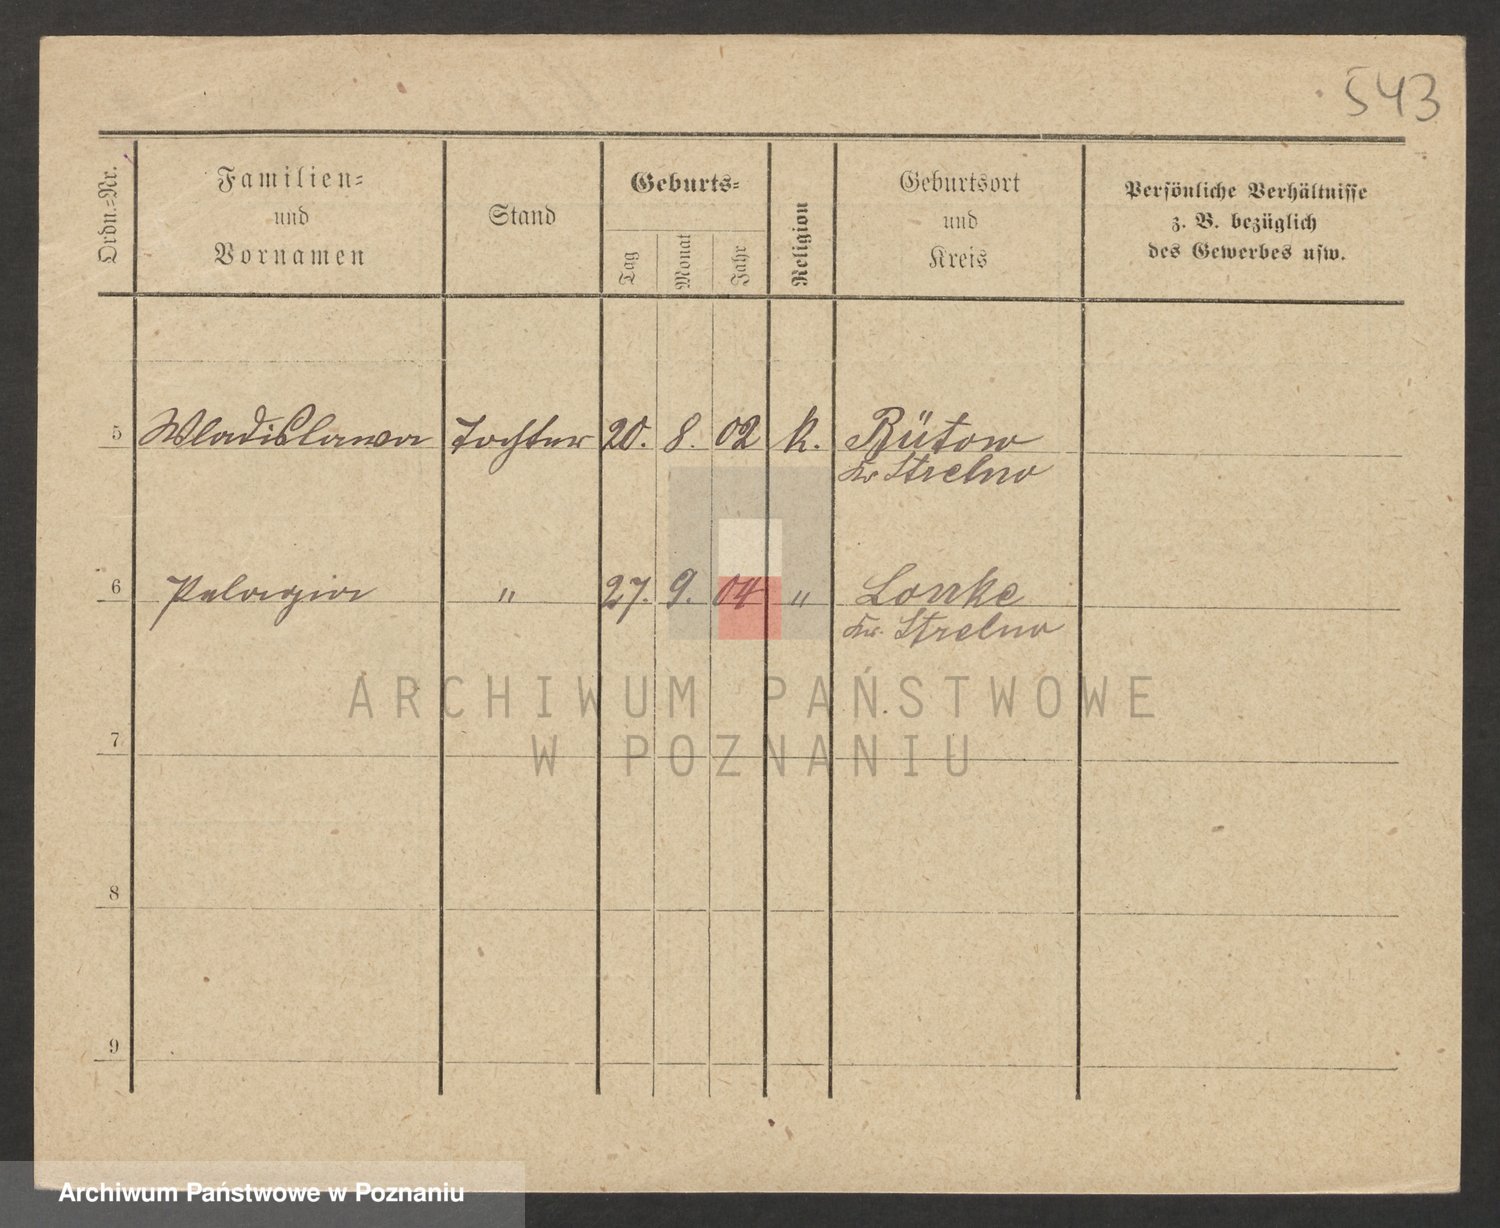 543
Ordn.-Nr.
Familien-
und
Vornamen
Stand
Geburts-
Tag
Monat
Jahr
Religion
Geburtsort
und
Kreis
Persönliche Verhältnisse
z. B. bezüglich
des Gewerbes usw.
5 Wladislawa Tochter 20. 8. 02 k. Bütow
Kr Strelno
6 Pelagia " 27. 9. 04 " Lonke
Kr. Strelno
ARCHIWUM PAŃSTWOWE
W POZNANIU
7
8
9
Archiwum Państwowe w Poznaniu